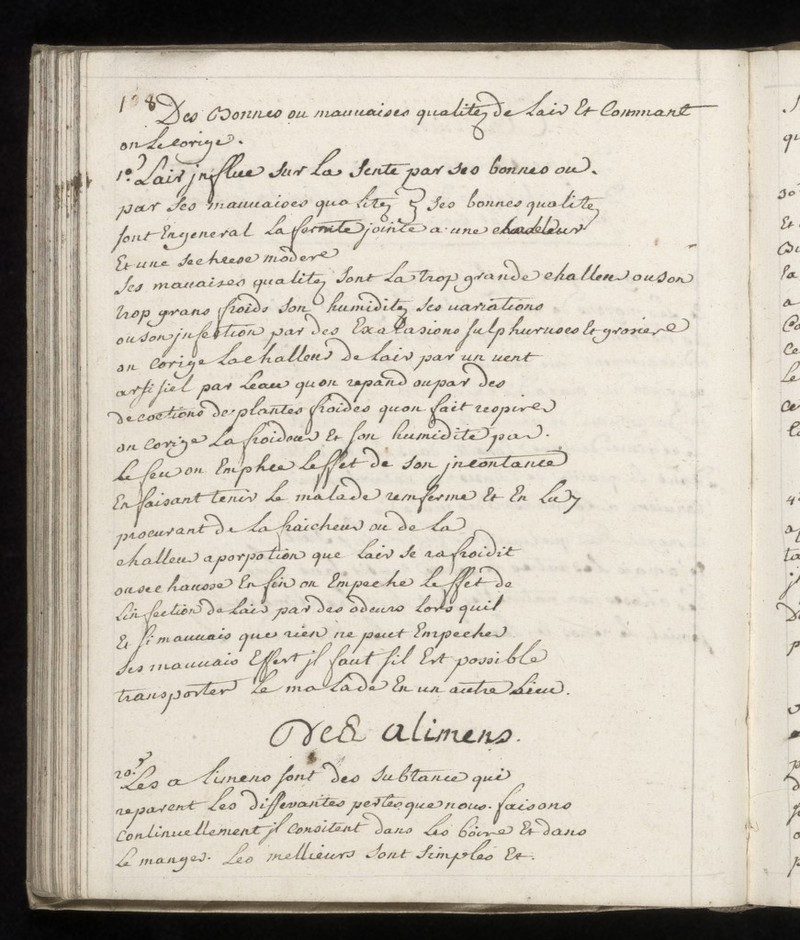 108 Des Bonnes ou mauuaises qualitez de Lair Et Commant
on Le corige.
1º. Lair jnflue sur La sente par ses bonnes ou.
par ses mauuaises qualitez ses bonnes qualitez
sont En general La fermte jointe a une chadeleur
Et une secheese modere
ses mauaises qualitez sont La trop grande challeur ou son
trop grans froids son humidite ses uariations
ou son jnfection par des Exalasions sulphuruses Et grosiere
on corige La challeur de Lair par un uent
artifisiel par Leau quon repand ou par des
decoctions de plantes froides quon fait respirer
on corige La froideur Et son humidite par.
Le feu on Emphee Leffet de son jncontance
En faisant tenir Le malade remferme Et En Luy
procurant de La fraicheur ou de La
challeur a porpotion que Lair se rafroidit
ou sechausse Enfin on Empeche Leffet de
Linfection de Lair par des odeurs Lors quil
Et si mauuais que rien ne peut Empecher
ses mauuais Effert jl faut sil Est possible
transporter Le malade En un autre Lieu.
Des alimens.
20. Les alimens sont des subtance qui
reparent Les differantes pertes que nous. faisons
Continuellement jl consitent dans Les boire Et dans
Le manger. Les mellieurs sont simples Et.